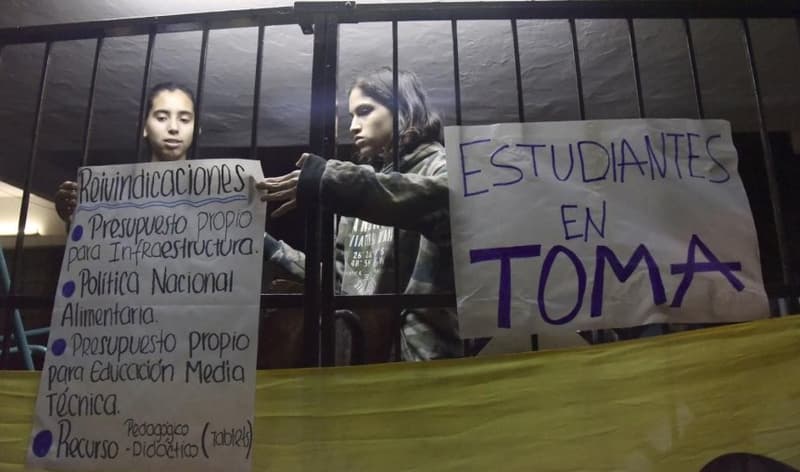 Reivindicaciones
Presupuesto Propio
para Infraestructura.
Política Nacional
Alimentaria.
Presupuesto Propio
para Educación Media
Técnica.
Recurso Pedagógico
- Didáctico (Tablets)
ESTUDIANTES
EN
TOMA